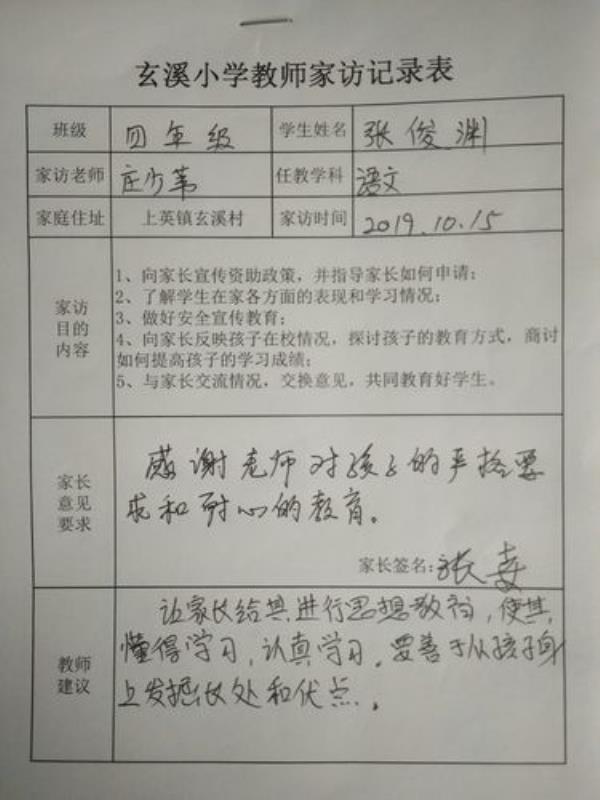 玄溪小学教师家访记录表
班级 四年级 学生姓名 张俊渊
家访老师 庄少苇 任教学科 语文
家庭住址 上英镇玄溪村 家访时间 2019.10.15
家访
目的
内容
1、向家长宣传资助政策，并指导家长如何申请；
2、了解学生在家各方面的表现和学习情况；
3、做好安全宣传教育；
4、向家长反映孩子在校情况，探讨孩子的教育方式，商讨
如何提高孩子的学习成绩；
5、与家长交流情况，交换意见，共同教育好学生。
家长
意见
要求
感谢老师对孩子的严格要
求和耐心的教育。
家长签名：张
教师
建议
让家长给其进行思想教育，使其
懂得学习，认真学习。要善于从孩子身
上发掘长处和优点。